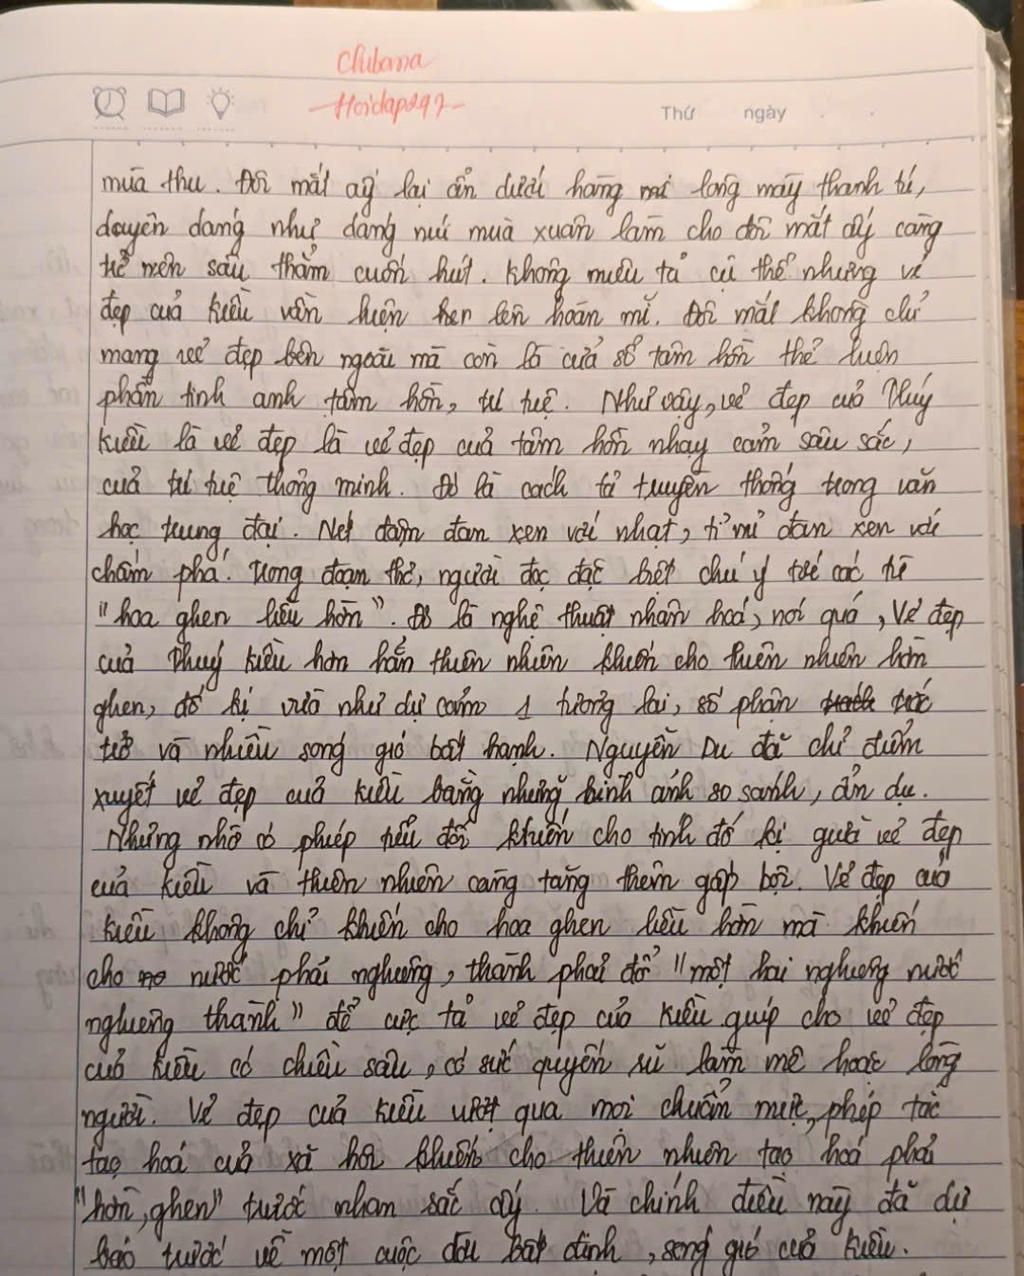 Chibana
-Hoidap247-
Thứ ngày
mùa thu. Đôi mắt ấy lại ẩn dưới hàng mi lông mày thanh tú,
duyên dáng như dáng núi mùa xuân làm cho đôi mắt ấy càng
trở nên sâu thẳm cuốn hút. Không miêu tả cụ thể nhưng vẻ
đẹp của Kiều vẫn hiện hen lên hoàn mĩ. Đôi mắt không chỉ
mang vẻ đẹp bên ngoài mà còn là cửa sổ tâm hồn thể hiện
phần tinh anh tâm hồn, trí tuệ. Như vậy, vẻ đẹp của Thúy
Kiều là vẻ đẹp là vẻ đẹp của tâm hồn nhạy cảm sâu sắc,
của trí tuệ thông minh. Đó là cách tả truyền thống trong văn
học trung đại. Nét đậm đan xen với nhạt, tỉ mỉ đan xen với
chấm phá. Trong đoạn thơ, người đọc đặc biệt chú ý tới các từ
"hoa ghen liễu hờn". Đó là nghệ thuật nhân hoá, nói quá, Vẻ đẹp
của Thuý Kiều hơn hẳn thiên nhiên khiến cho thiên nhiên hờn
ghen, đố kị vừa như dự cảm 1 tương lai, số phận trắc
trở và nhiều sóng gió bất hạnh. Nguyễn Du đã chỉ điểm
xuyết vẻ đẹp của Kiều bằng những hình ảnh so sánh, ẩn dụ.
Nhưng nhờ có phép tiểu đối khiến cho tính đố kị giữa vẻ đẹp
của Kiều và thiên nhiên càng tăng thêm gấp bội. Vẻ đẹp của
Kiều không chỉ khiến cho hoa ghen liễu hờn mà khiến
cho nước phải nghiêng, thành phải đổ "một hai nghiêng nước
nghiêng thành" để cực tả vẻ đẹp của Kiều giúp cho vẻ đẹp
của Kiều có chiều sâu, có sức quyến rũ làm mê hoặc lòng
người. Vẻ đẹp của Kiều vượt qua mọi chuẩn mực, phép tắc
tạo hoá của xã hội khiến cho thiên nhiên tạo hoá phải
"hờn, ghen" trước nhan sắc ấy. Và chính điều này đã dự
báo trước về một cuộc đời bất định, sóng gió của Kiều.